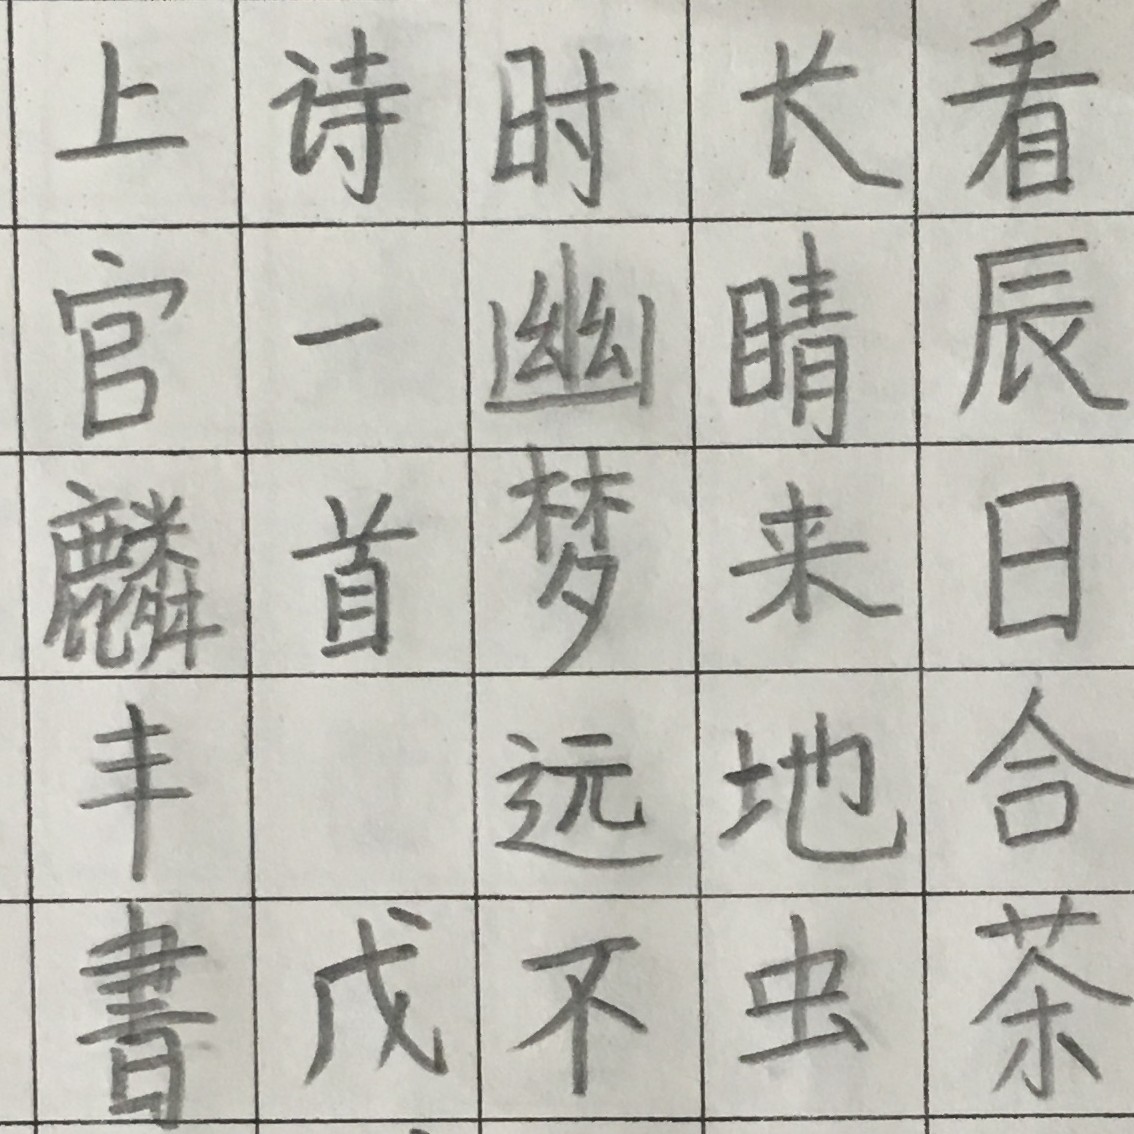 看辰日合茶
长晴来地虫
时幽梦远不
诗一首 戊
上官麟丰書